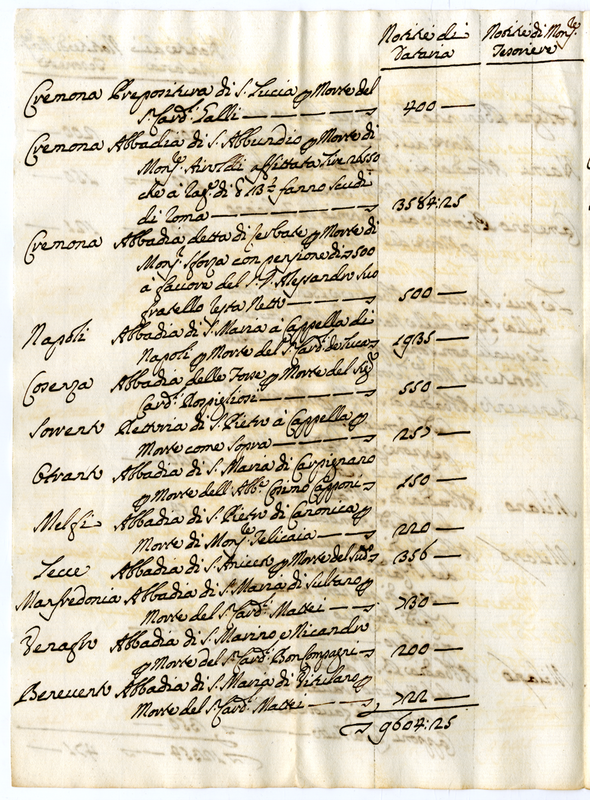 Notitie di Notitie di Mons.re
Dataria Tesoriere
Cremona Prepositura di S. Lucia p Morte del
S. Card. Lalli 400
Cremona Abbadia di S. Abbundio p Morte di
Mons. Airoldi affittata
che à rag.e di fanno Scudi
di Roma 3584:25
Cremona Abbadia detta di p Morte di
Mons. Sforza con pensione di 500
à favore del S. D. Alessandro suo
fratello resta Netti 500
Napoli Abbadia di S. Maria à Cappella di
Napoli p Morte del S. Card. de 1935
Cosenza Abbadia delle p Morte del Sig.
Card. Rospigliosi 550
Sorrento Rettoria di S. Pietro à Cappella p
Morte come sopra 257
Otranto Abbadia di S. Maria di Carpignano
p Morte dell Abb. Cosimo Capponi 150
Melfi Abbadia di S. Pietro di Canonica p
Morte di Mons.re Felicaia 220
Lecce Abbadia di S. Aniceto p Morte del sud.o 356
Manfredonia Abbadia di S. Maria di p
Morte del S. Card. Mattei 730
Venafro Abbadia di S. Marino e Nicandro
p Morte del S. Card. Boncompagni 200
Benevento Abbadia di S. Maria di Vitulano p
Morte del S. Card. Mattei 722
9604:25